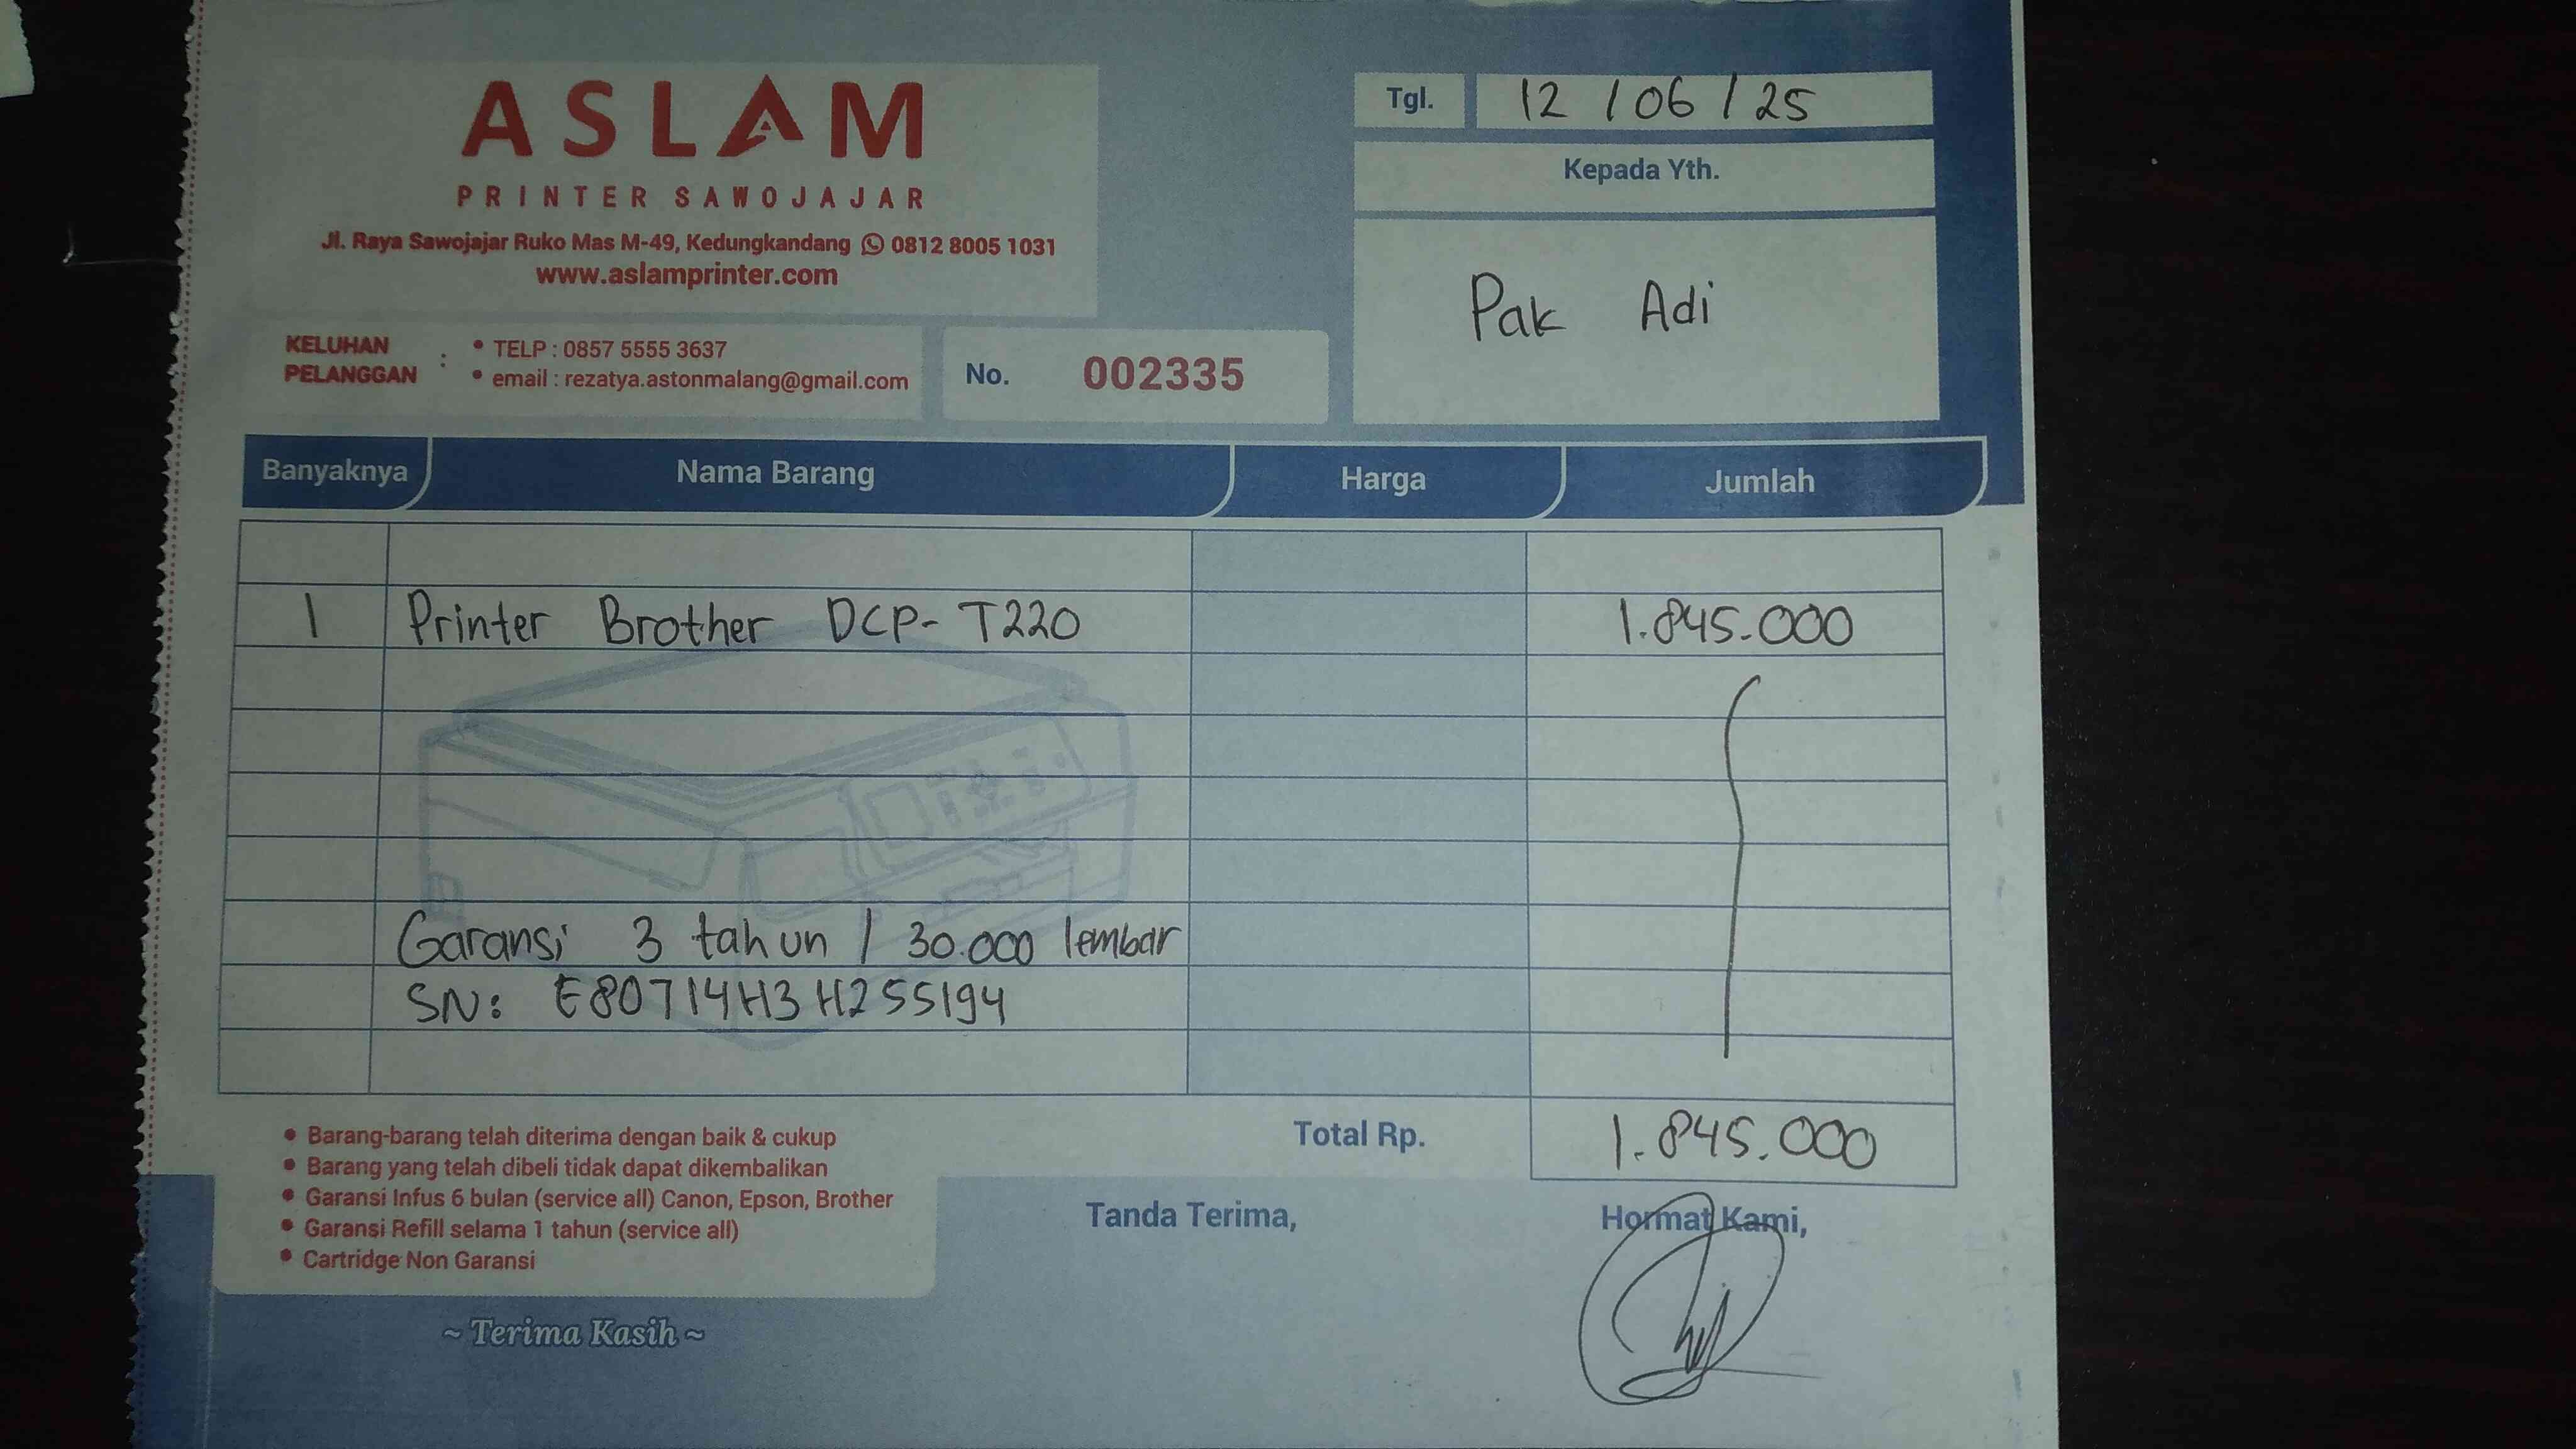 ASLAM
PRINTER SAWOJAJAR
Jl. Raya Sawojajar Ruko Mas M-49, Kedungkandang 0812 8005 1031
www.aslamprinter.com
KELUHAN PELANGGAN :
• TELP : 0857 5555 3637
• email : rezatya.astonmalang@gmail.com
No. 002335
Tgl. 12 / 06 / 25
Kepada Yth.
Pak Adi
Banyaknya Nama Barang Harga Jumlah
1 Printer Brother DCP-T220 1.845.000
Garansi 3 tahun / 30.000 lembar
SN: E80714H3H255194
Total Rp. 1.845.000
• Barang-barang telah diterima dengan baik & cukup
• Barang yang telah dibeli tidak dapat dikembalikan
• Garansi Infus 6 bulan (service all) Canon, Epson, Brother
• Garansi Refill selama 1 tahun (service all)
• Cartridge Non Garansi
Tanda Terima,
Hormat Kami,
~ Terima Kasih ~